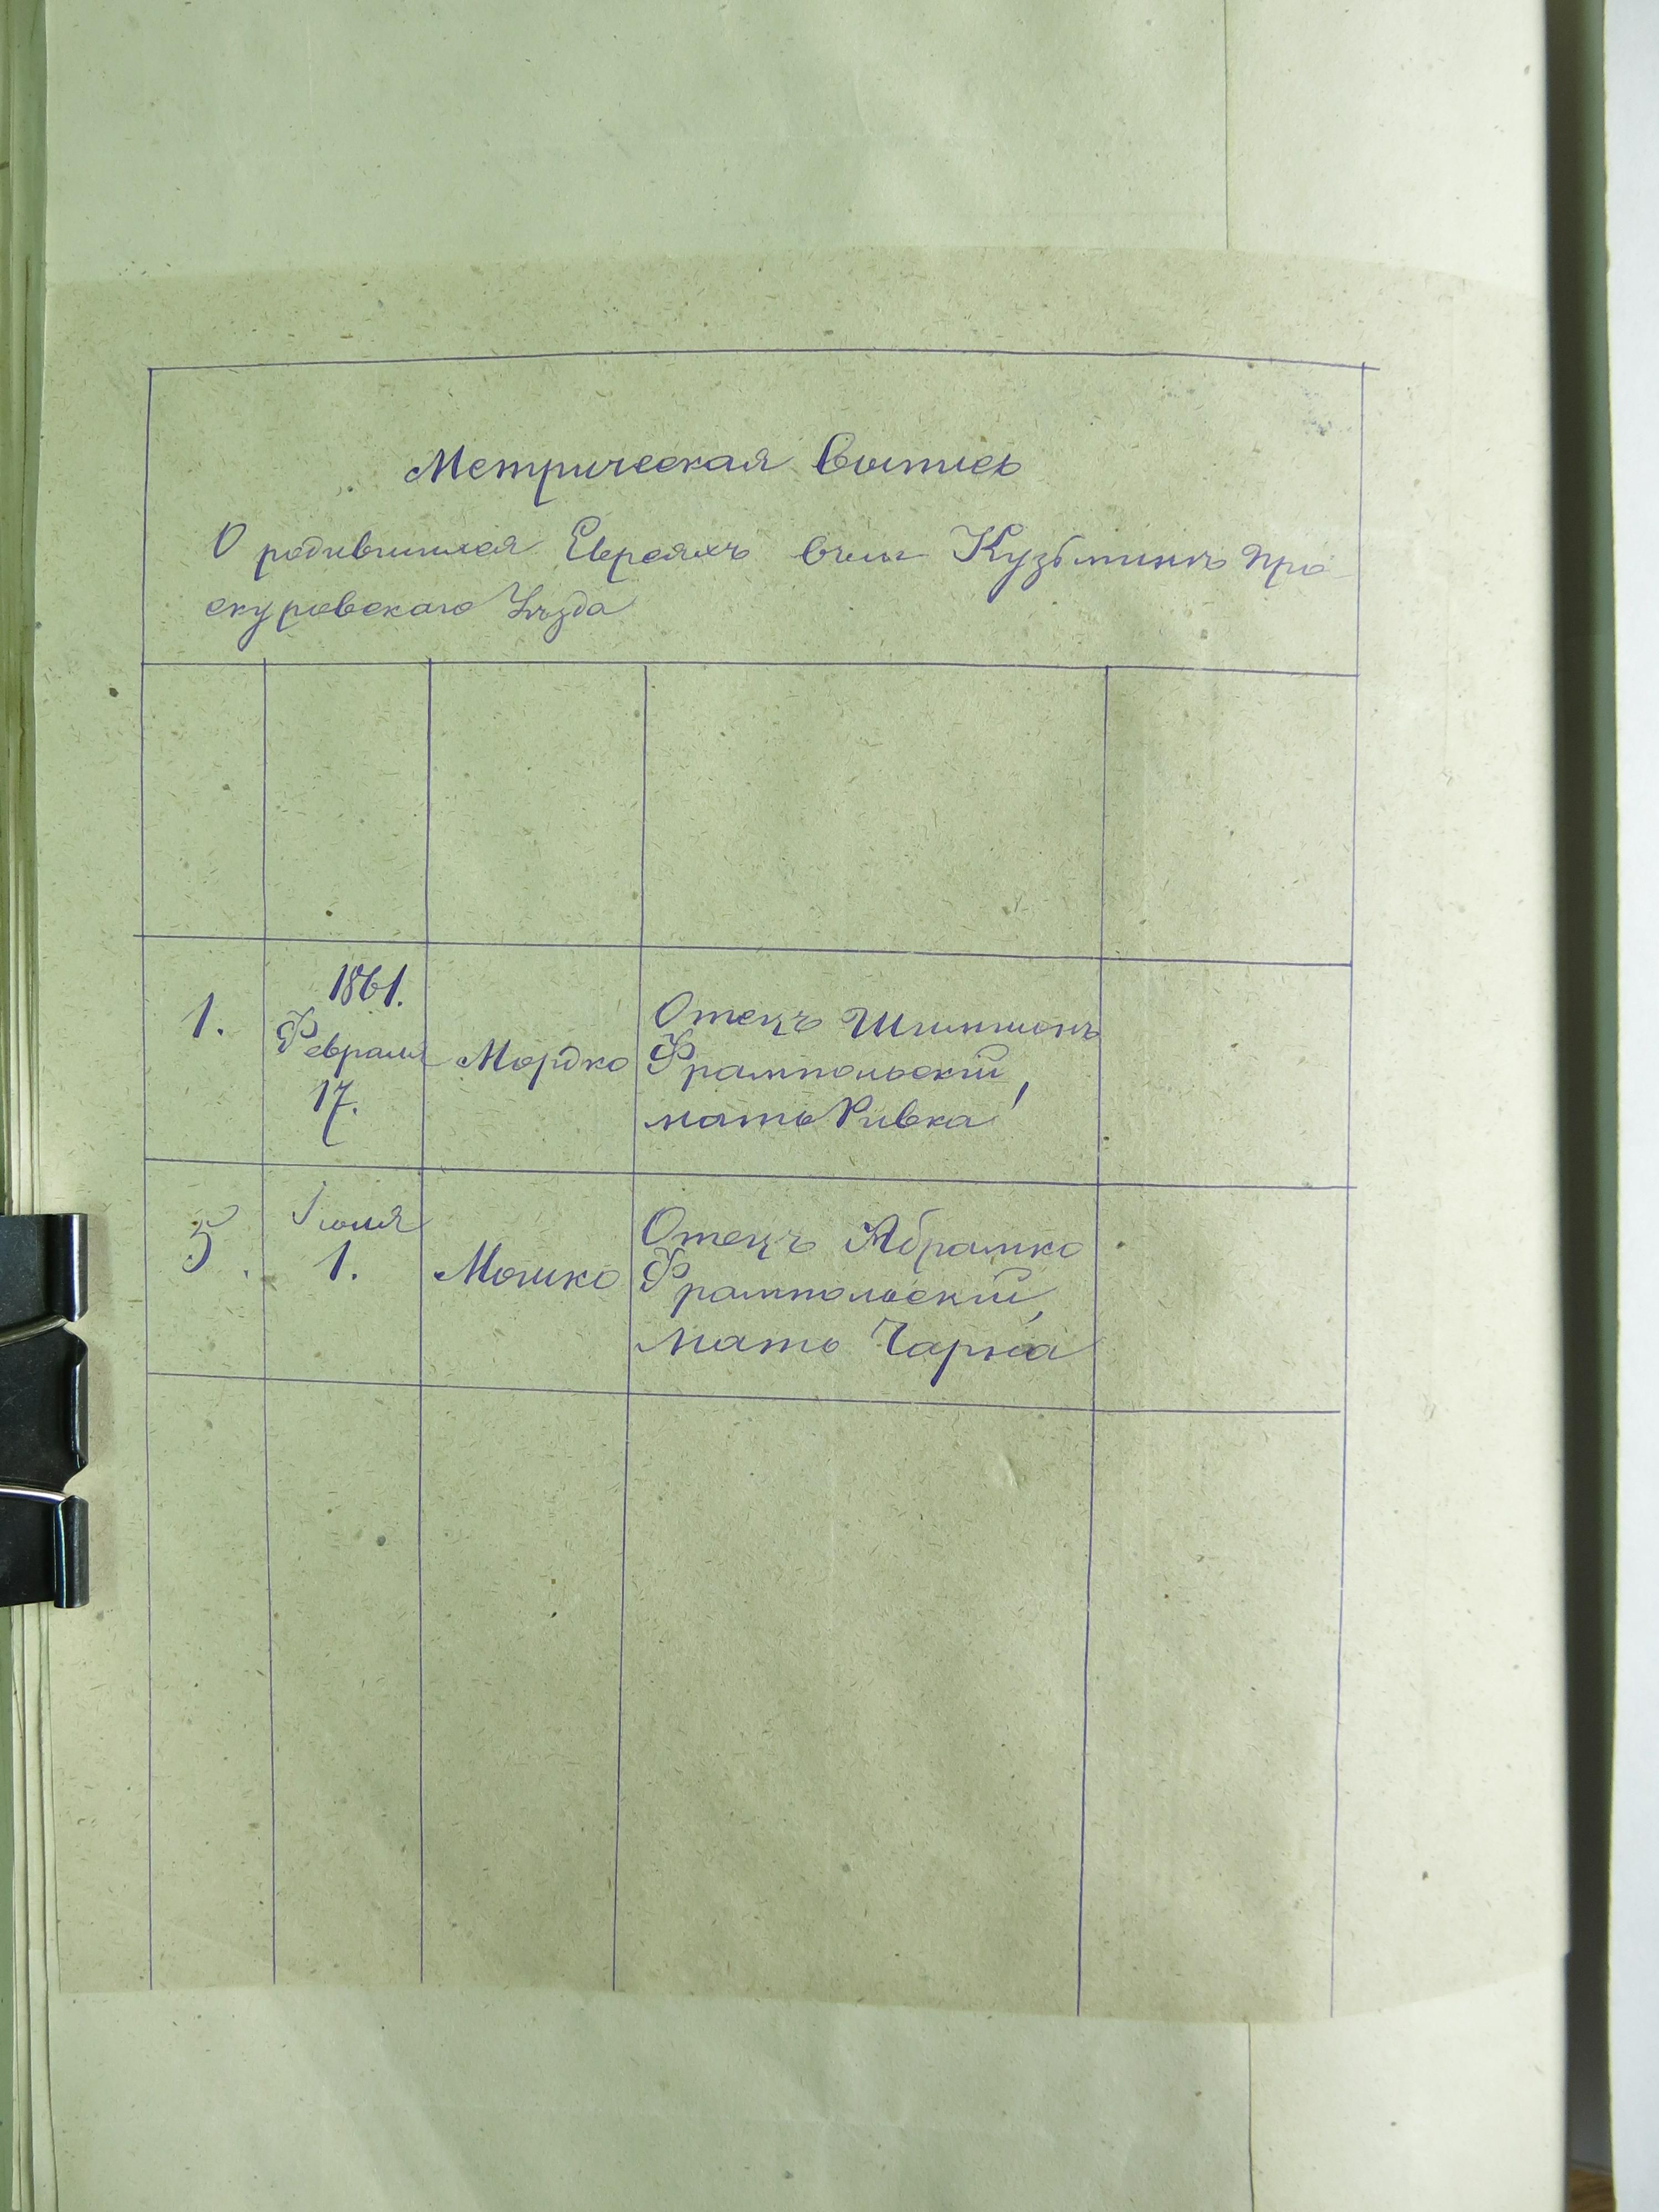 Метрическая Выпись
О родившихся Евреяхъ въ м. Кузьминъ Про-
скуровскаго Уѣзда
1.
1861.
Февраля
17.
Мордко
Отецъ Шлиомонъ
Фрампольскій,
мать Ривка
5.
Іюля
1.
Мошко
Отецъ Абрамко
Фрампольскій,
мать Чарна